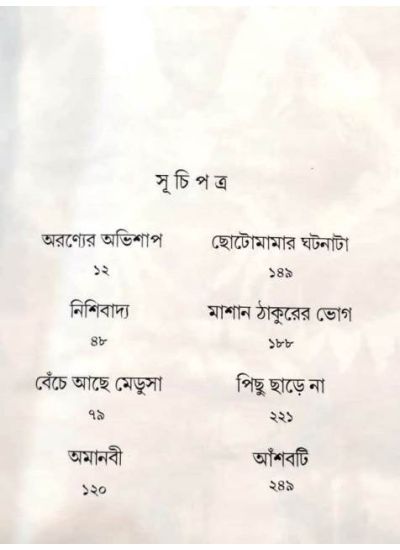 সূ চি প ত্র
অরণ্যের অভিশাপ
১২
নিশিবাদ্য
৪৮
বেঁচে আছে মেডুসা
৭৯
অমানবী
১২০
ছোটোমামার ঘটনাটা
১৪৯
মাশান ঠাকুরের ভোগ
১৮৮
পিছু ছাড়ে না
২২১
আঁশবটি
২৪৯